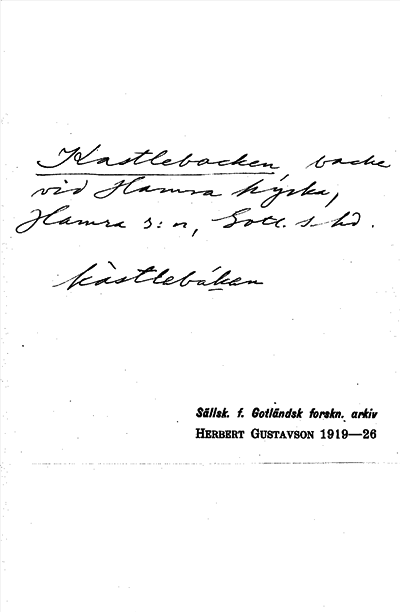 Kastlebacken, backe
vid Hamra kyrka,
Hamra s:n, Gotl. s hd.
kàstlebáken
Sällsk. f. Gotländsk forskn. arkiv
HERBERT GUSTAVSON 1919—26